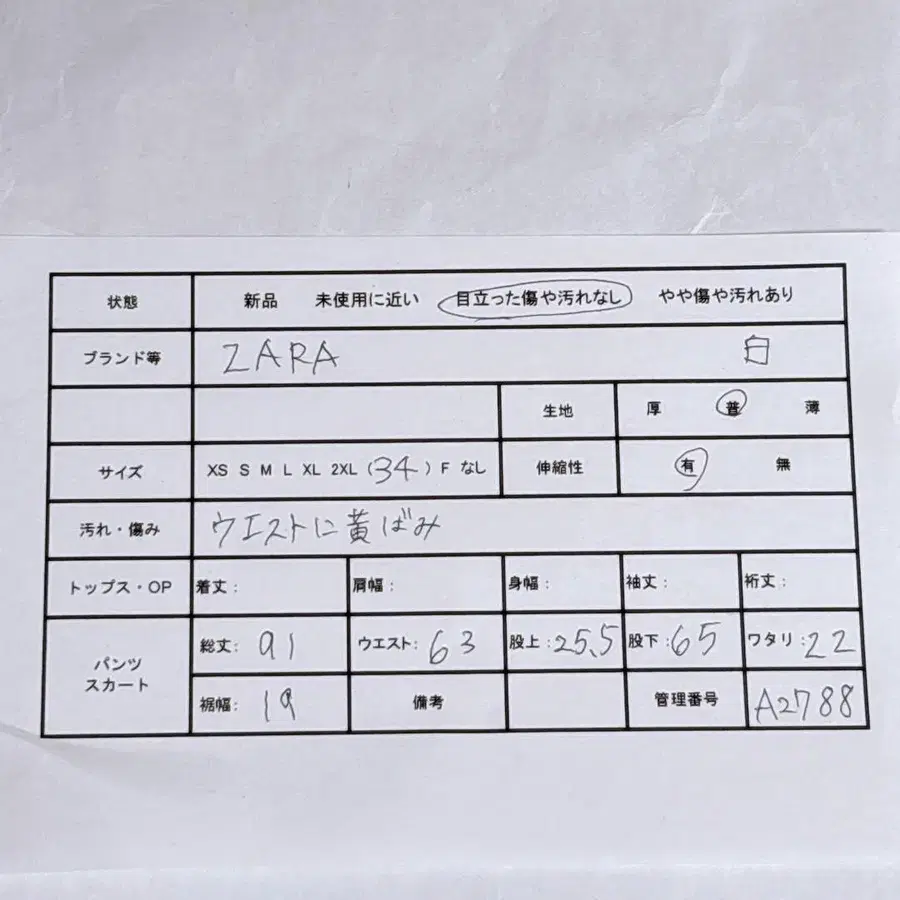 状態 新品 未使用に近い 目立った傷や汚れなし やや傷や汚れあり
ブランド等 ZARA 白
生地 厚 普 薄
サイズ XS S M L XL 2XL (34) F なし 伸縮性 有 無
汚れ・傷み ウエストに黄ばみ
トップス・OP 着丈: 肩幅: 身幅: 袖丈: 裄丈:
パンツ スカート 総丈: 91 ウエスト: 63 股上: 25.5 股下: 65 ワタリ: 22
裾幅: 19 備考 管理番号 A2788